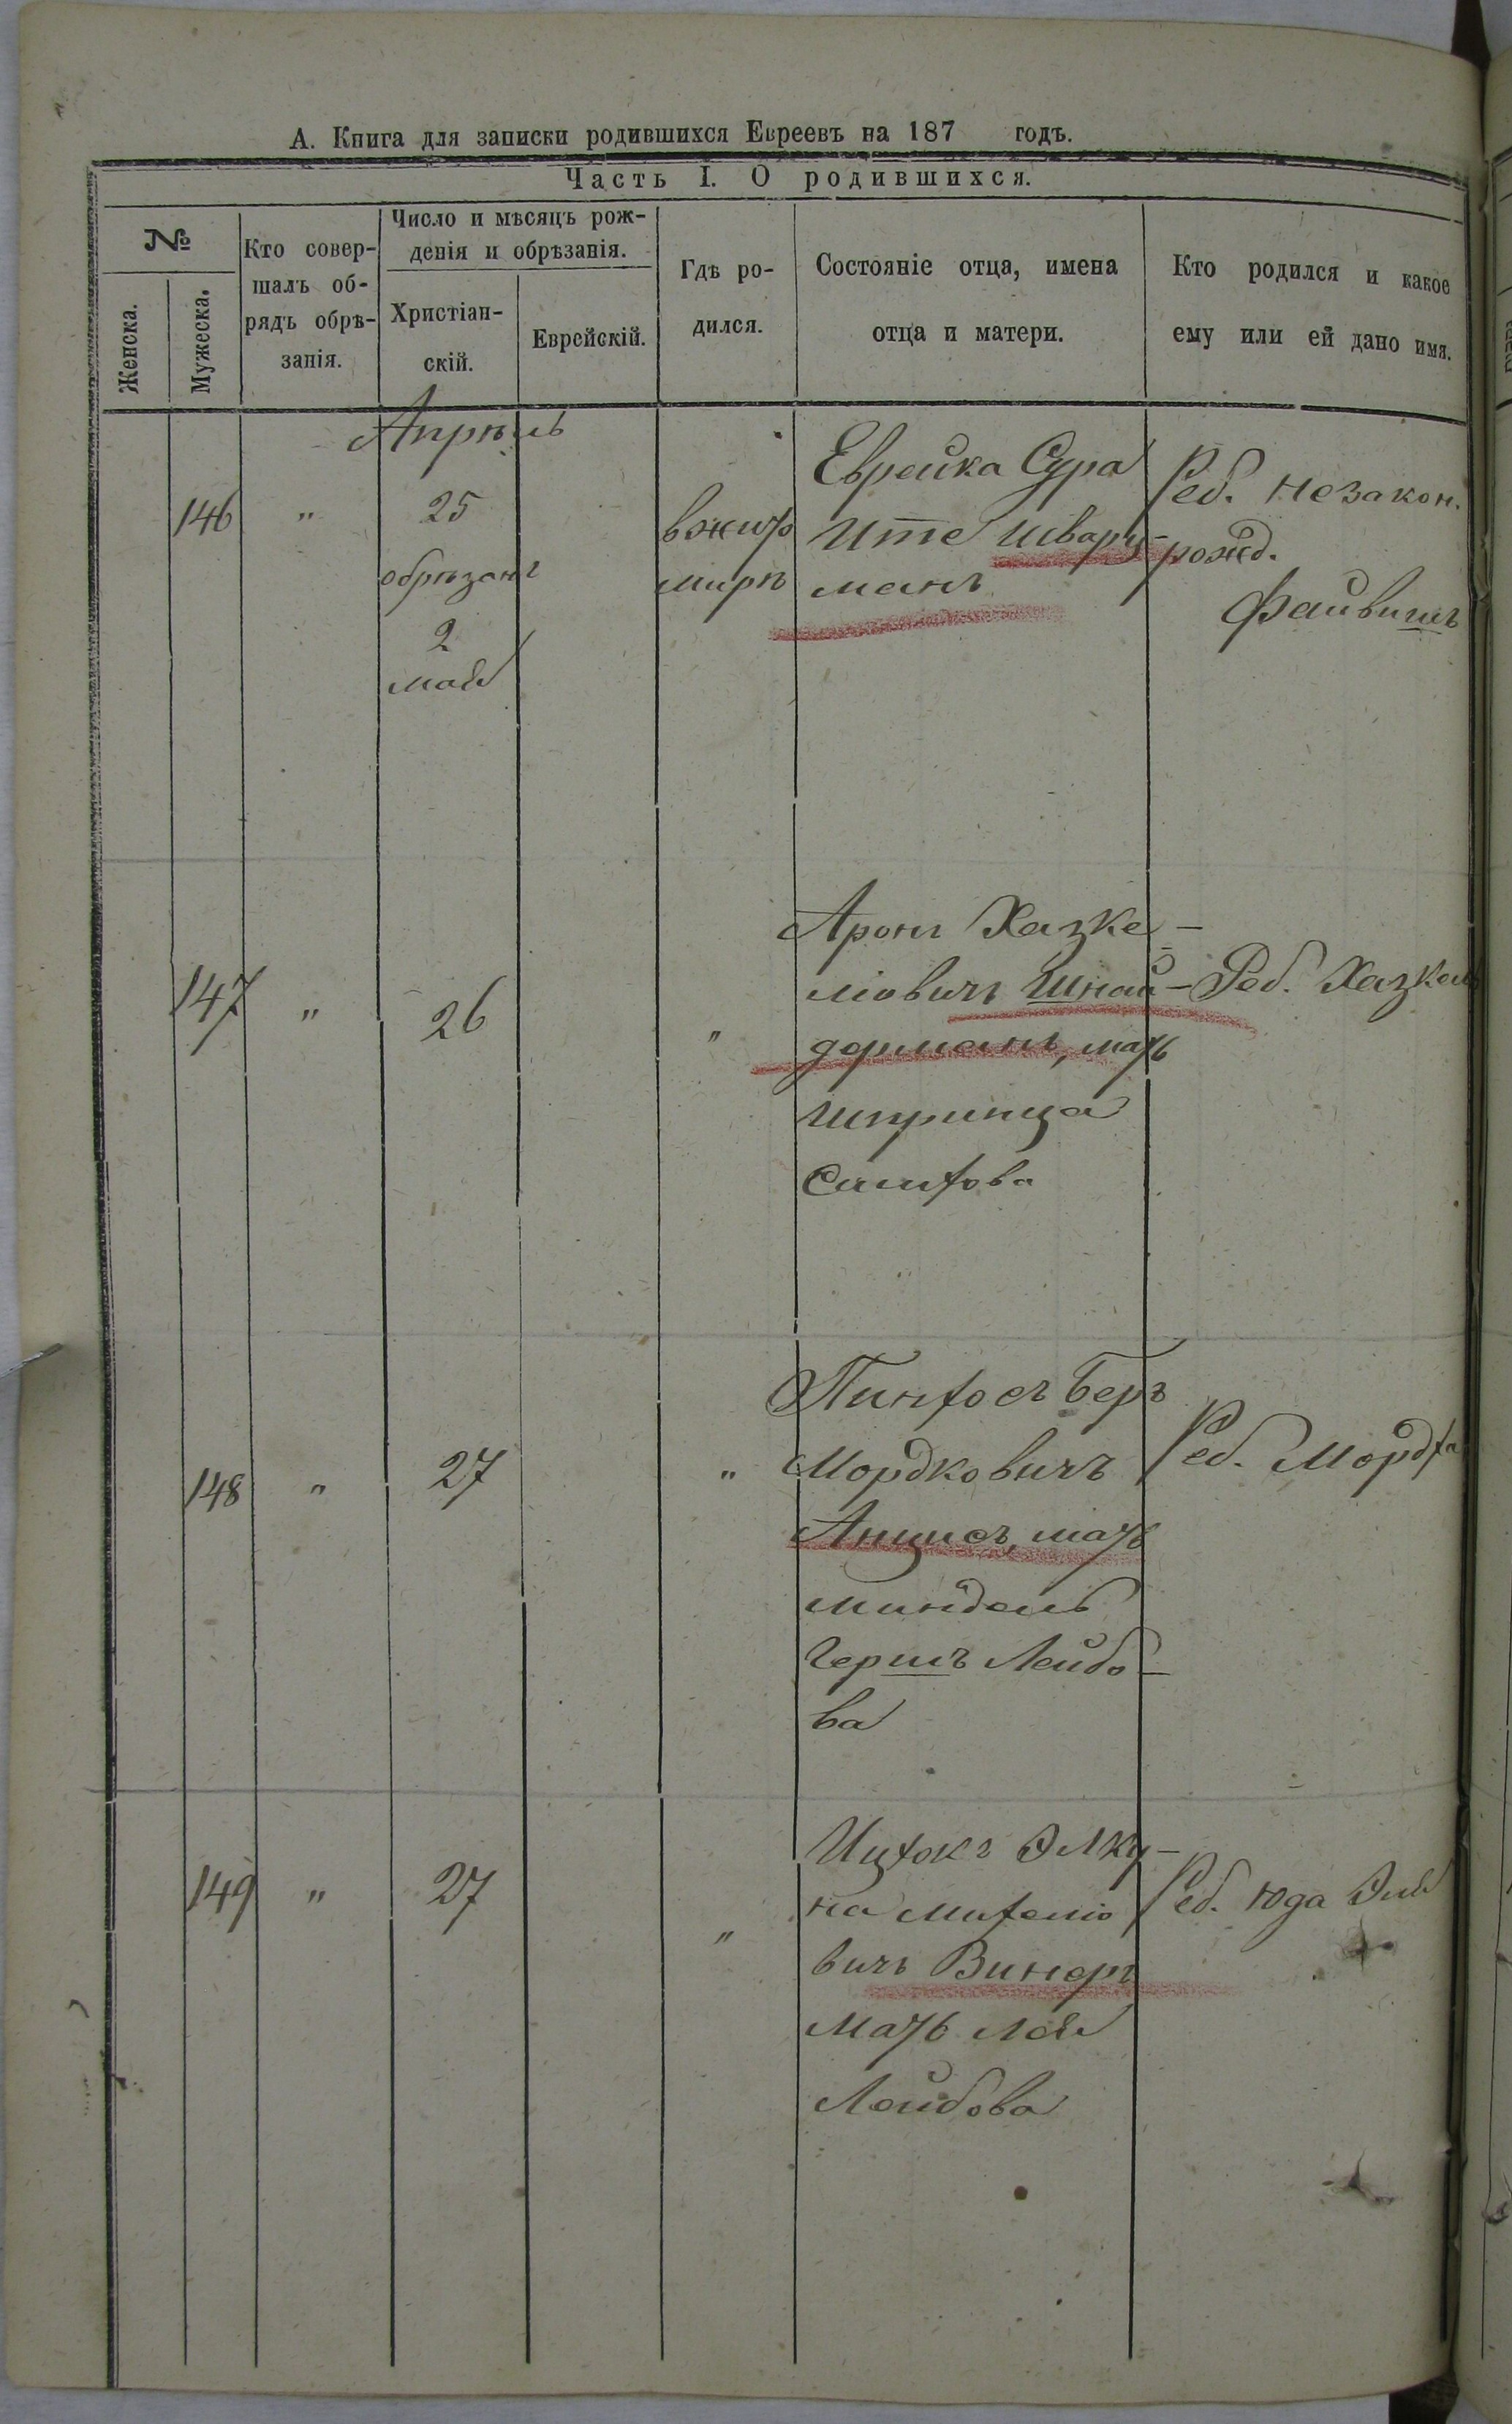 А. Книга для записки родившихся Евреевъ на 187 годъ.
Часть I. О родившихся.
№
Женска.
Мужеска.
Кто совер-
шалъ об-
рядъ обрѣ-
занія.
Число и мѣсяцъ рож-
денія и обрѣзанія.
Христіан-
скій.
Еврейскій.
Гдѣ ро-
дился.
Состояніе отца, имена
отца и матери.
Кто родился и какое
ему или ей дано имя.
Апрѣль
146 " 25
обрѣзанъ
2
мая
вжито
мирѣ
Еврейка Сура
Ите Шварц-
манъ
Реб. незакон.
рожд.
Файвишъ
147 " 26 "
Аронъ Хазке-
ліовичъ Шнай-
дерманъ, мать
Шпринца
Реб. Хазкель
148 " 27 "
Пинхосъ Беръ
Мордковичъ
Анцисъ, мать
Миндель
Гершъ Лейбо-
ва
Реб. Мордха
149 " 27 "
Ицхокъ Элку-
на Михеліо
вичъ Винеръ
мать Лея
Лейбова
Реб. Юда Эля